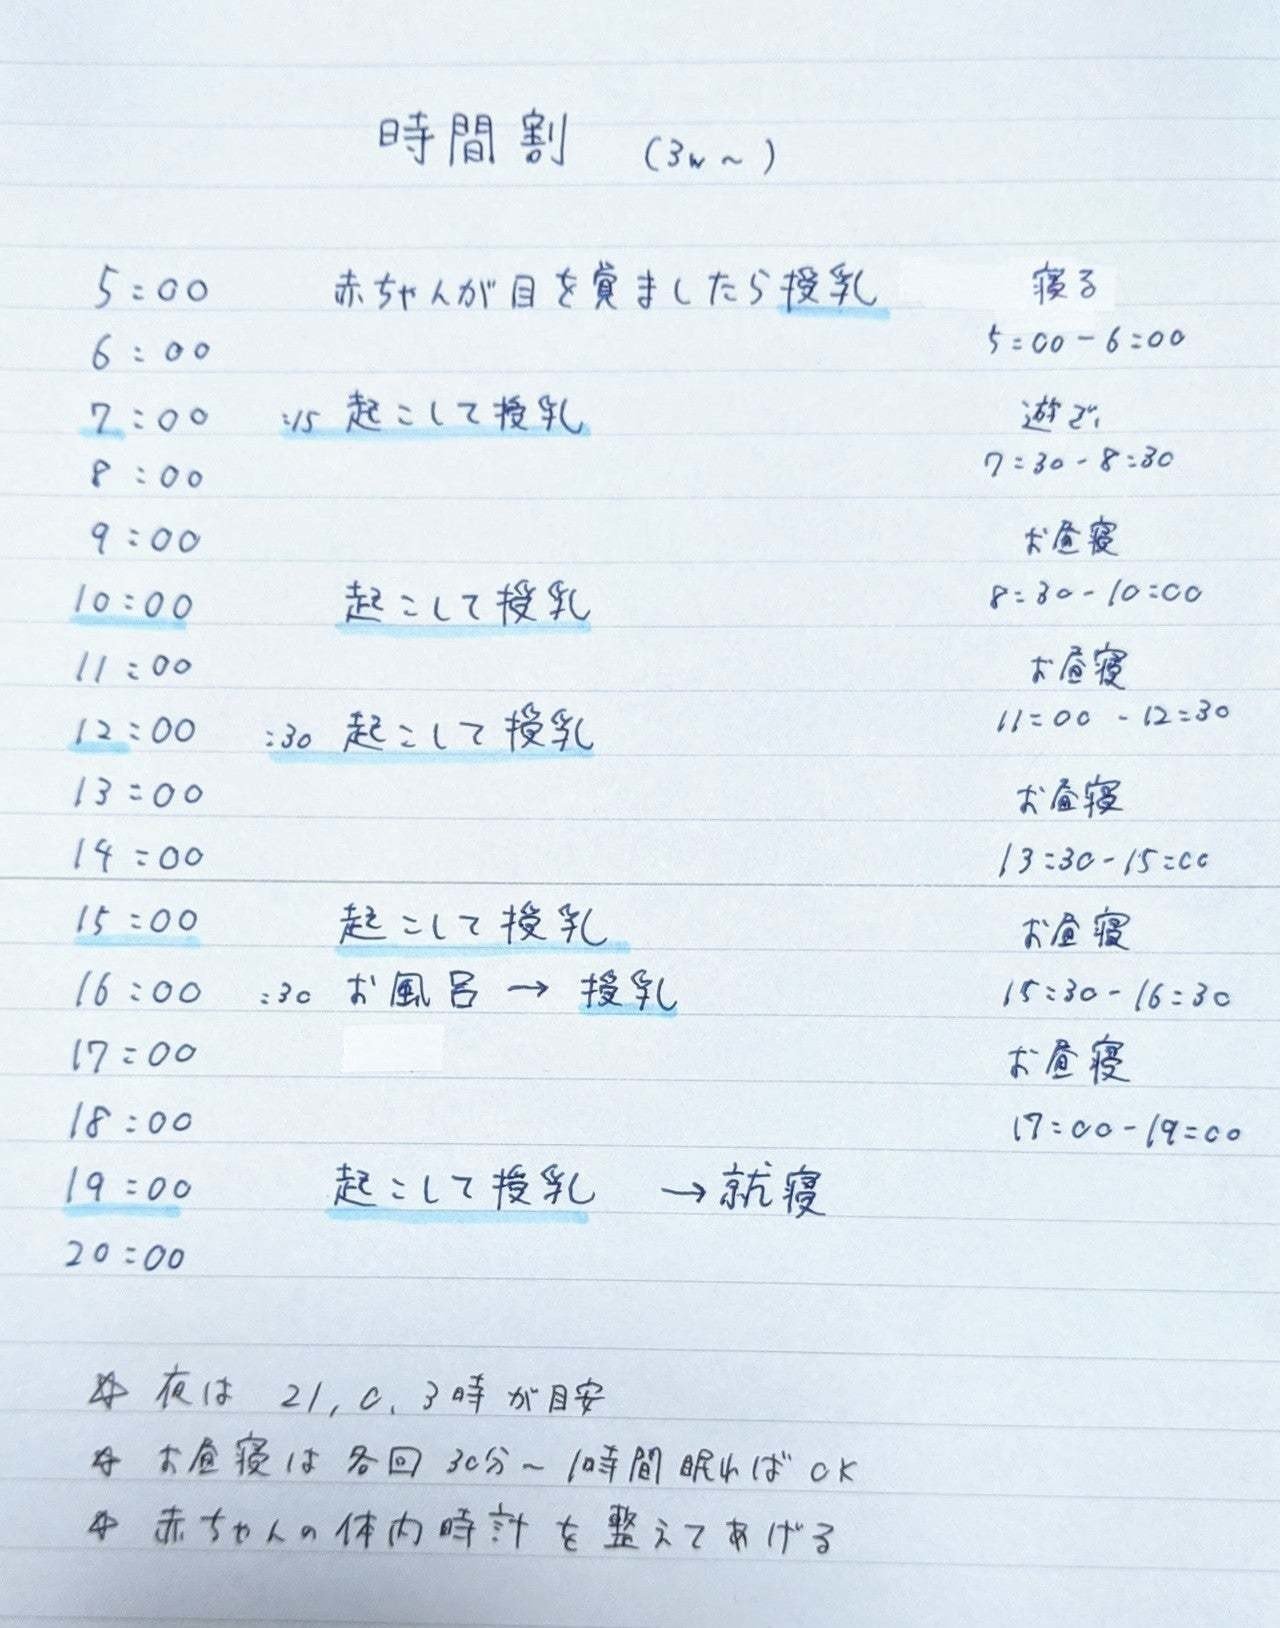 時間割 (3w～)
5:00 赤ちゃんが目を覚ましたら授乳 寝る
5:00-6:00
6:00
7:00 :15 起こして授乳 遊ぶ
7:30-8:30
8:00
9:00 お昼寝
8:30-10:00
10:00 起こして授乳
11:00 お昼寝
11:00-12:30
12:00 :30 起こして授乳
13:00 お昼寝
13:30-15:00
14:00
15:00 起こして授乳 お昼寝
15:30-16:30
16:00 :30 お風呂→授乳
17:00 お昼寝
17:00-19:00
18:00
19:00 起こして授乳 →就寝
20:00
☆ 夜は 21, 0, 3時が目安
☆ お昼寝は各回 30分～1時間眠ればOK
☆ 赤ちゃんの体内時計を整えてあげる